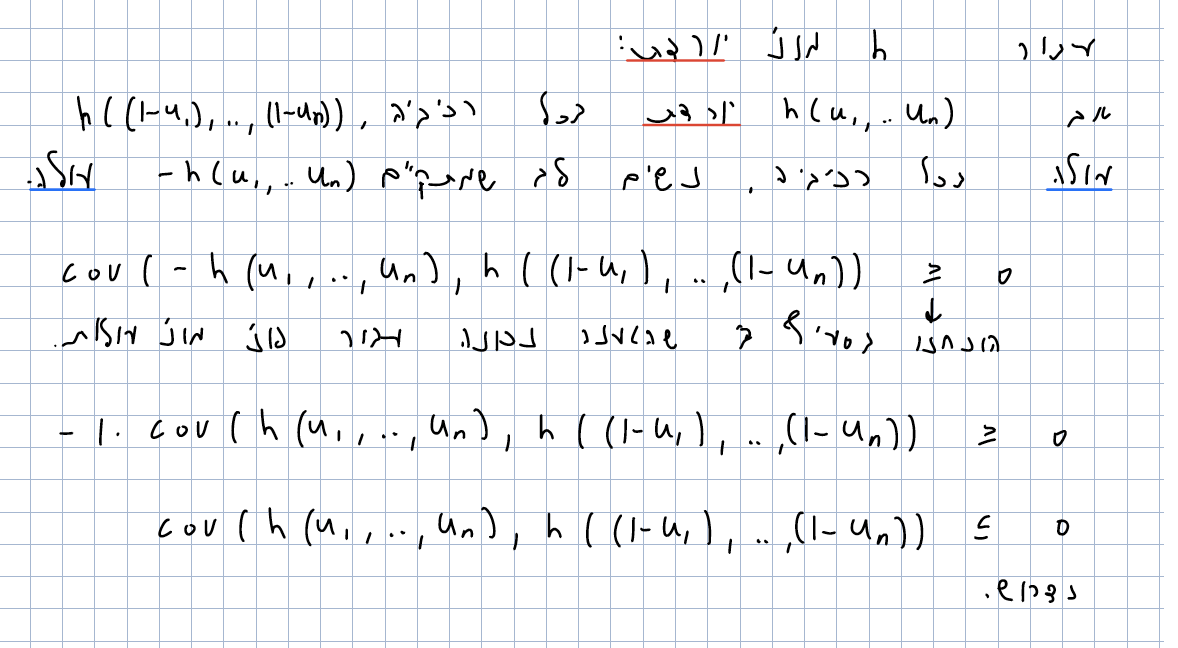 עבור h מונ' יורדת:
אם h(u₁,..un) יורדת בכל רכיביה, h((1-u₁),..,(1-un))
עולה בכל רכיביה, נשים לב שמתקיים -h(u₁,..un) עולה.
cov(-h(u₁,..,un), h((1-u₁),..,(1-un)) ≥ 0
↓
הוכחנו בסעיף ב שהטענה נכונה עבור פונ' מונ' עולות.
-1. cov(h(u₁,..,un), h((1-u₁),..,(1-un)) ≥ 0
cov(h(u₁,..,un), h((1-u₁),..,(1-un)) ≤ 0
כדרוש.